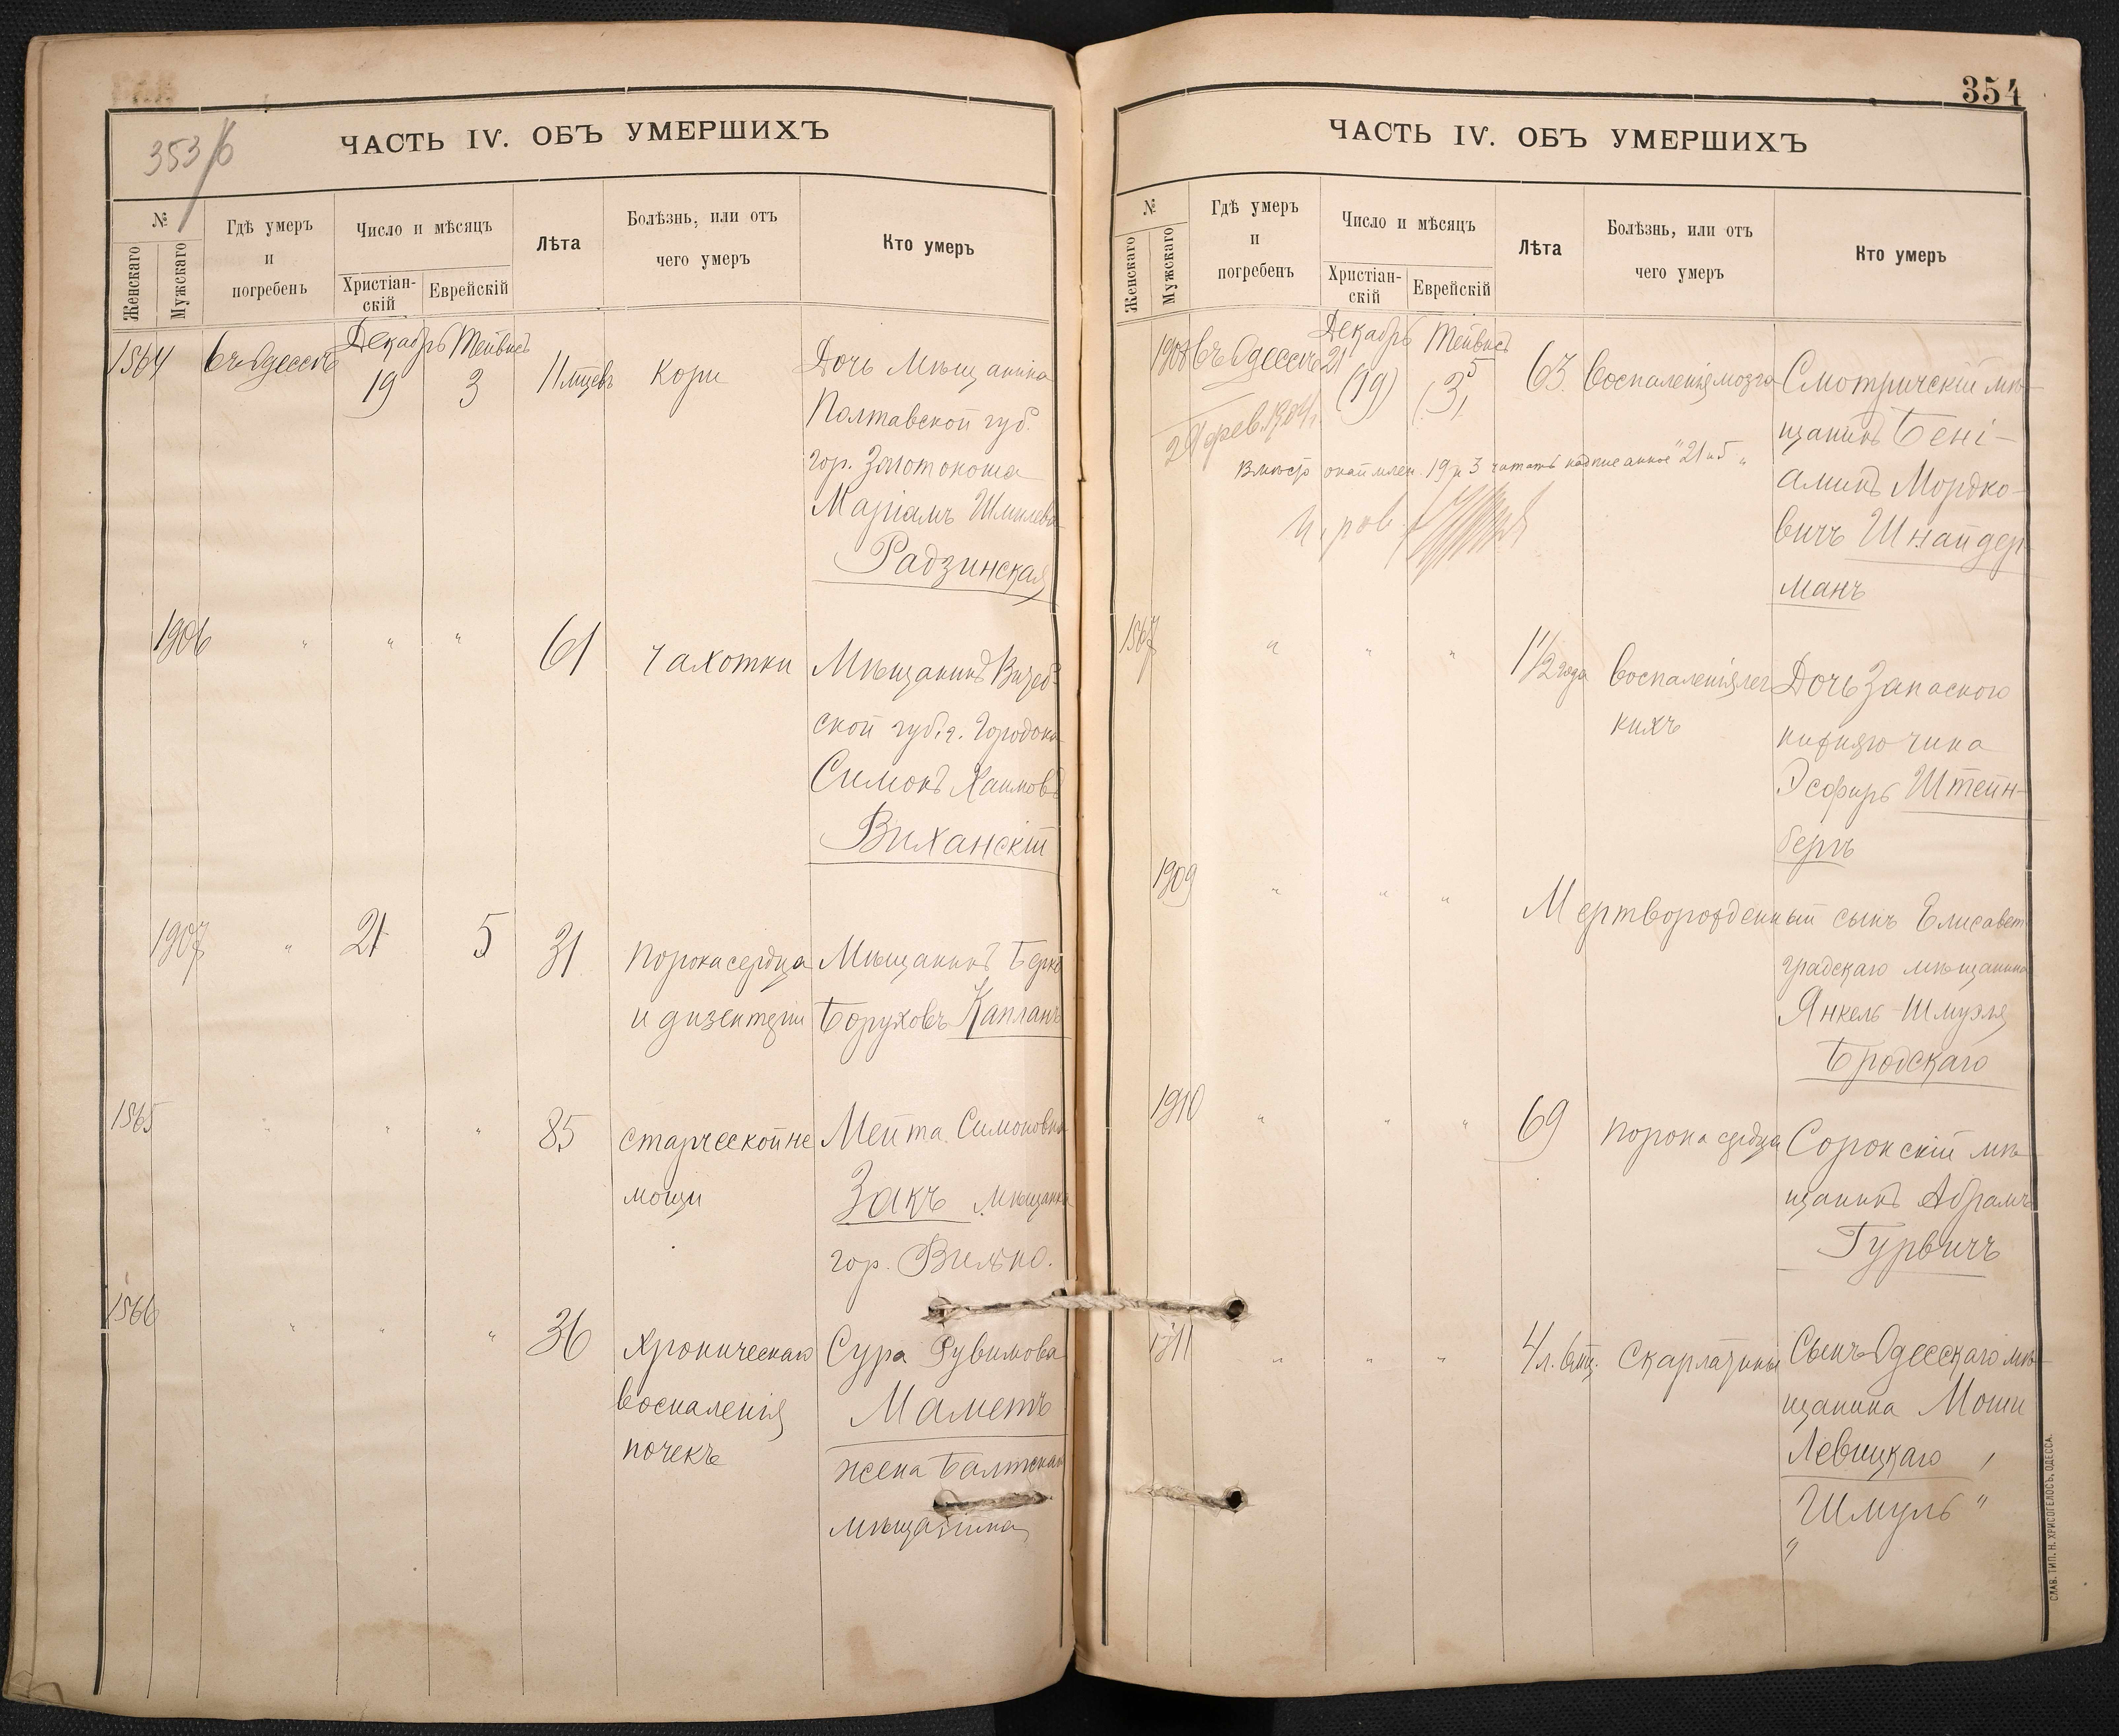 353/б
ЧАСТЬ IV. ОБЪ УМЕРШИХЪ
№
Женскаго
Мужскаго
Гдѣ умеръ
и
погребенъ
Число и мѣсяцъ
Христіан-
скій
Еврейскій
Лѣта
Болѣзнь, или отъ
чего умеръ
Кто умеръ
1564 въ Одессѣ Декабрь 19 Тейвесъ 3 11 мцевъ Кори Дочь Мѣщанина
Полтавской губ.
гор. Золотоноша
Маріамъ Шмилева
Радзинская
1906 " " " 61 Чахотки Мѣщанинъ Витеб-
ской губ. г. Городока
Симонъ Хаимовъ
Виханскій
1907 " 21 5 31 Порока сердца Мѣщанинъ Берко
и дизентеріи Боруховъ Капланъ
1565 " " " 85 Старческой не Мейта Симоновна
мощи Закъ мѣщанка
гор. Вильно.
1566 " " " 36 Хроническаго Сура Рувимова
воспаленія Маметъ
почекъ жена Балтскаго
мѣщанина
354
ЧАСТЬ IV. ОБЪ УМЕРШИХЪ
№
Женскаго
Мужскаго
Гдѣ умеръ
и
погребенъ
Число и мѣсяцъ
Христіан-
скій
Еврейскій
Лѣта
Болѣзнь, или отъ
чего умеръ
Кто умеръ
1908 въ Одессѣ Декабрь 21 (19) Тейвесъ 5 (3) 63 Воспаленія мозга Смотрическій мѣ-
щанинъ Бені-
аминъ Мордко-
вичъ Шнайдер-
манъ
фев. 1904 г.
Вмѣсто 19 и 3 читать надписанное "21 и 5"
1567 " " " 1 1/2 года Воспаленія лег Дочь Запаснаго
кихъ нижняго чина
Эсфирь Штейн-
бергъ
1909 " " " Мертворожденный сынъ Елисавет-
градскаго мѣщанина
Янкель-Шмуэля
Бродскаго
1910 " " " 69 Порока сердца Сорокскій мѣ-
щанинъ Абрамъ
Гурвичъ
1911 " " " 4 л. 6 мц. Скарлатины Сынъ Одесскаго мѣ-
щанина Моши
Левицкаго,
"Шмуль"
СЛАВ. ТИП. Н. ХРИСОГЕЛОСЪ, ОДЕССА.